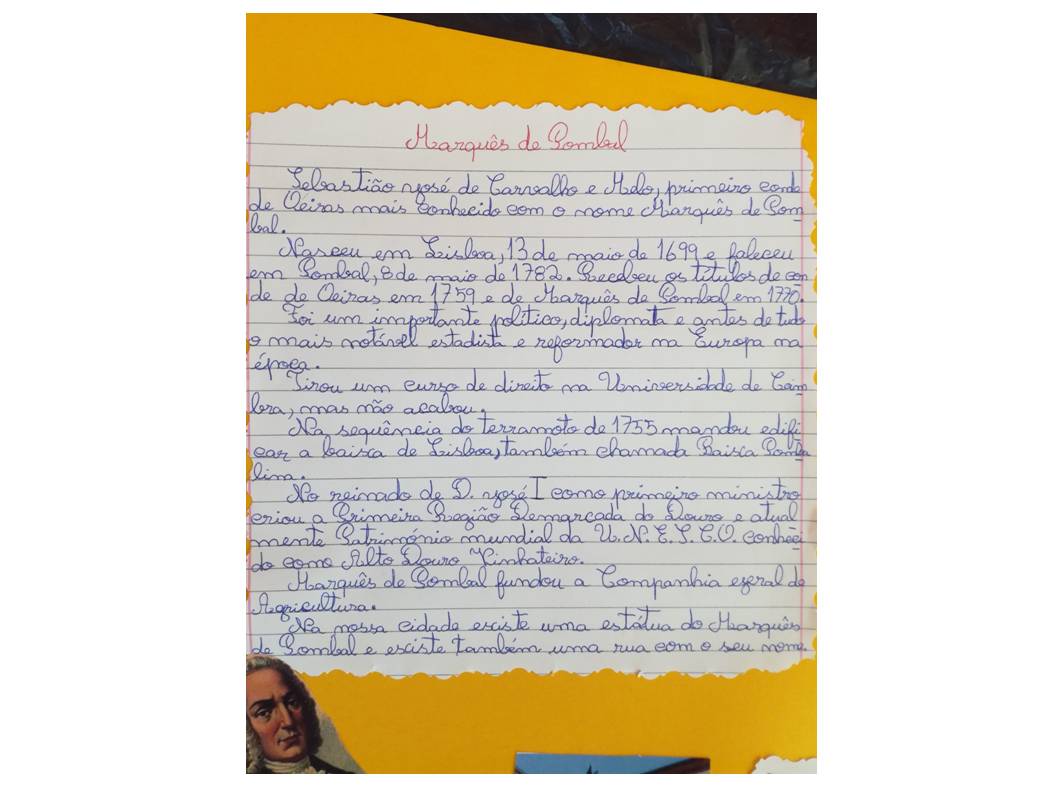 Marquês de Pombal
Sebastião José de Carvalho e Melo, primeiro conde
de Oeiras mais conhecido com o nome Marquês de Pom
bal.
Nasceu em Lisboa, 13 de maio de 1699 e faleceu
em Pombal, 8 de maio de 1782. Recebeu os títulos de con
de de Oeiras em 1759 e de Marquês de Pombal em 1770.
Foi um importante político, diplomata e antes de tudo
o mais notável estadista e reformador na Europa na
época.
Tirou um curso de direito na Universidade de Coim
bra, mas não acabou.
Na sequência do terramoto de 1755 mandou edifi
car a baixa de Lisboa, também chamada Baixa Pomba
lina.
No reinado de D. José I como primeiro ministro
criou a Primeira Região Demarcada do Douro e atual
mente Património mundial da U.N.E.S.C.O. conheci
do como Alto Douro Vinhateiro.
Marquês de Pombal fundou a Companhia geral de
Agricultura.
Na nossa cidade existe uma estátua do Marquês
de Pombal e existe também uma rua com o seu nome.